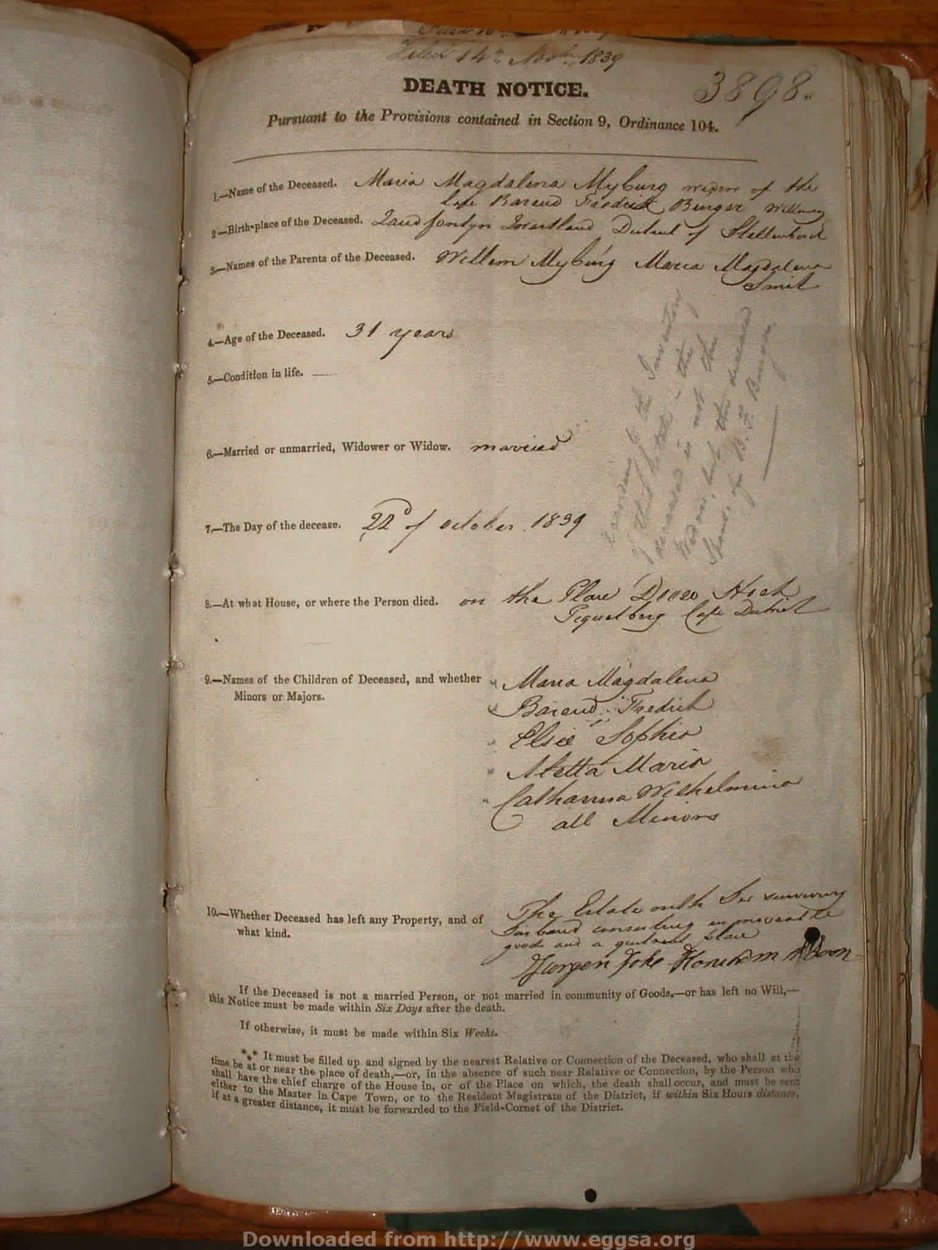 Filed 14th Novbr 1839
3898.
DEATH NOTICE.
Pursuant to the Provisions contained in Section 9, Ordinance 104.
1.—Name of the Deceased. Maria Magdalena Myburg widow of the
late Barend Fredrick Burger
2.—Birth-place of the Deceased. Zand fontyn Swartland District of Stellenbosch
3.—Names of the Parents of the Deceased. Willem Myburg Maria Magdalena
Smit
4.—Age of the Deceased. 31 years
5.—Condition in life. —
6.—Married or unmarried, Widower or Widow. married
7.—The Day of the decease. 22d of October 1839
8.—At what House, or where the Person died. on the Place Hoek
District
9.—Names of the Children of Deceased, and whether
Minors or Majors.
Maria Magdalena
Barend Fredrik
Elsie Sophia
Aletta Maria
Catharina Wilhelmina
all Minors
according to the Inventory
of this Estate - the
deceased is not the
Widow, but the deceased
Spouse of B. F. Burger
10.—Whether Deceased has left any Property, and of
what kind.
The Estate with surviving
husband consisting in moveable
goods and a quitrent place
Jurgen
If the Deceased is not a married Person, or not married in community of Goods,—or has left no Will,—
this Notice must be made within Six Days after the death.
If otherwise, it must be made within Six Weeks.
*** It must be filled up and signed by the nearest Relative or Connection of the Deceased, who shall at the
time be at or near the place of death,—or, in the absence of such near Relative or Connection, by the Person who
shall have the chief charge of the House in, or of the Place on which, the death shall occur, and must be sent
either to the Master in Cape Town, or to the Resident Magistrate of the District, if within Six Hours distance,
if at a greater distance, it must be forwarded to the Field-Cornet of the District.
Downloaded from http://www.eggsa.org